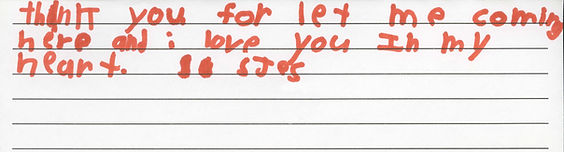 think you for let me coming
here and i love you In my
heart.